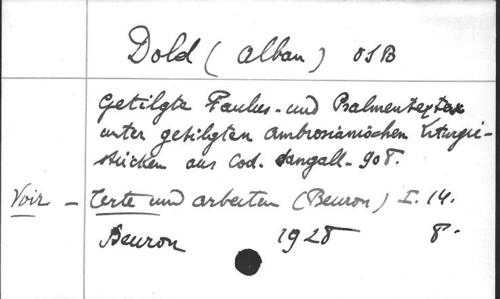 Dold (Alban) OSB
Getilgte Paulus- und Psalmentexte
unter getilgten ambrosianischen Liturgie-
stücken aus Cod. Sangall. 908.
Voir - Texte und arbeiten (Beuron) I. 14.
Beuron 1928 8°